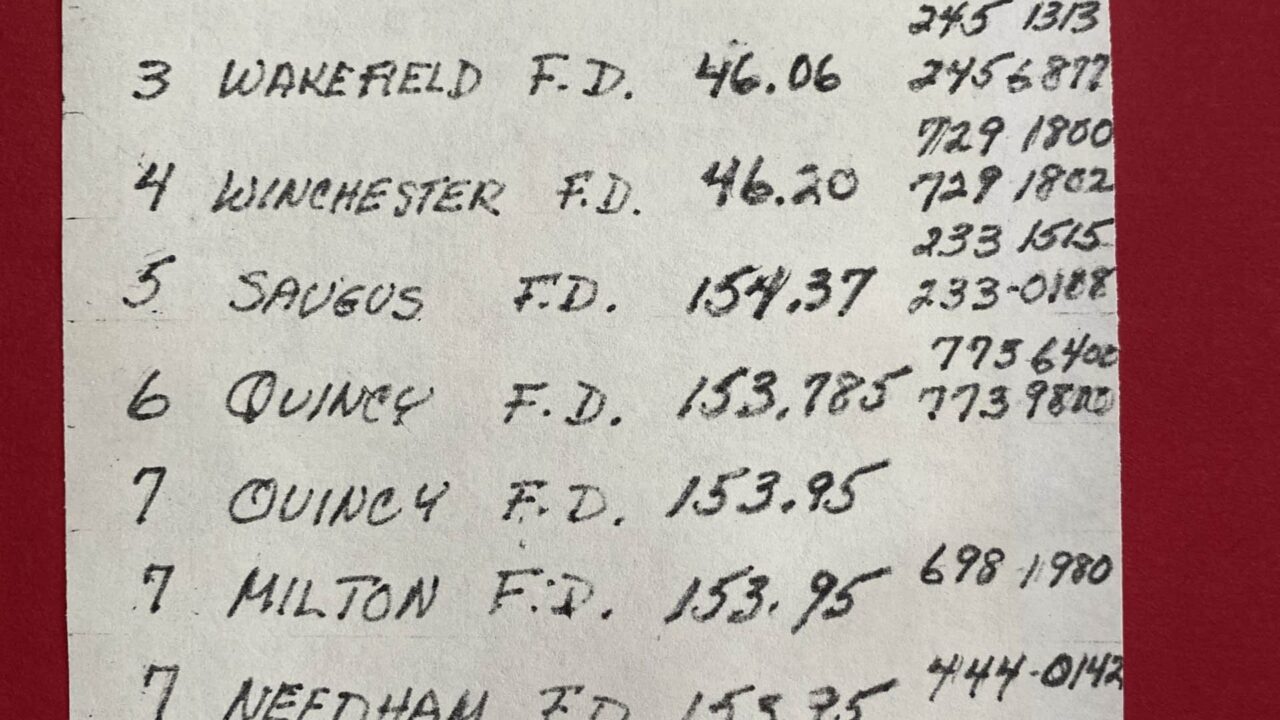 245 1313
3 WAKEFIELD F.D. 46.06 245 6877
729 1800
4 WINCHESTER F.D. 46.20 729 1802
233 1515
5 SAUGUS F.D. 154.37 233-0188
773 6400
6 QUINCY F.D. 153.785 773 9800
7 QUINCY F.D. 153.95
7 MILTON F.D. 153.95 698 1980
7 NEEDHAM F.D. 444-0142